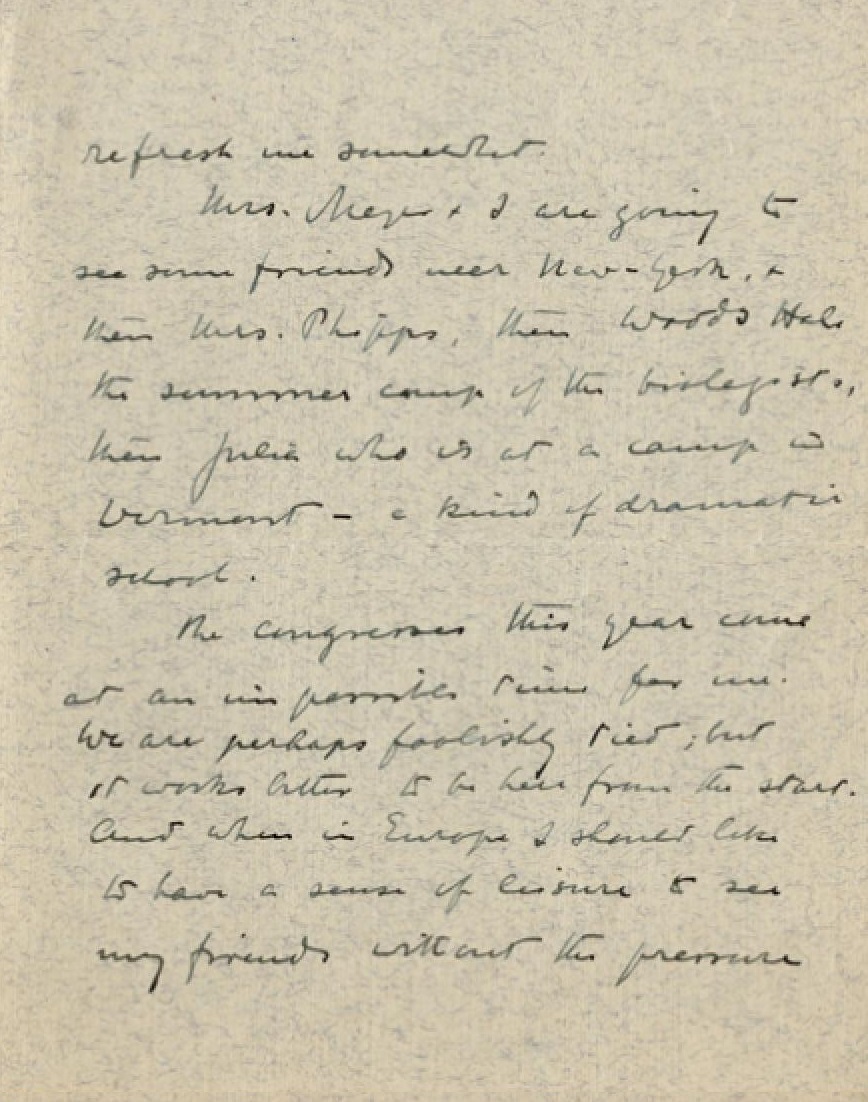 refresh me somewhat.
Mrs. Meyer & I are going to
see some friends near New-York, &
then Mrs. Phipps, then Woods Hole
the summer camp of the biologists,
then Julia who is at a camp in
Vermont – a kind of dramatic
school.
The congresses this year come
at an impossible time for me.
We are perhaps foolishly tied; but
it works better to be here from the start.
And when in Europe I should like
to have a sense of leisure to see
my friends without the pressure